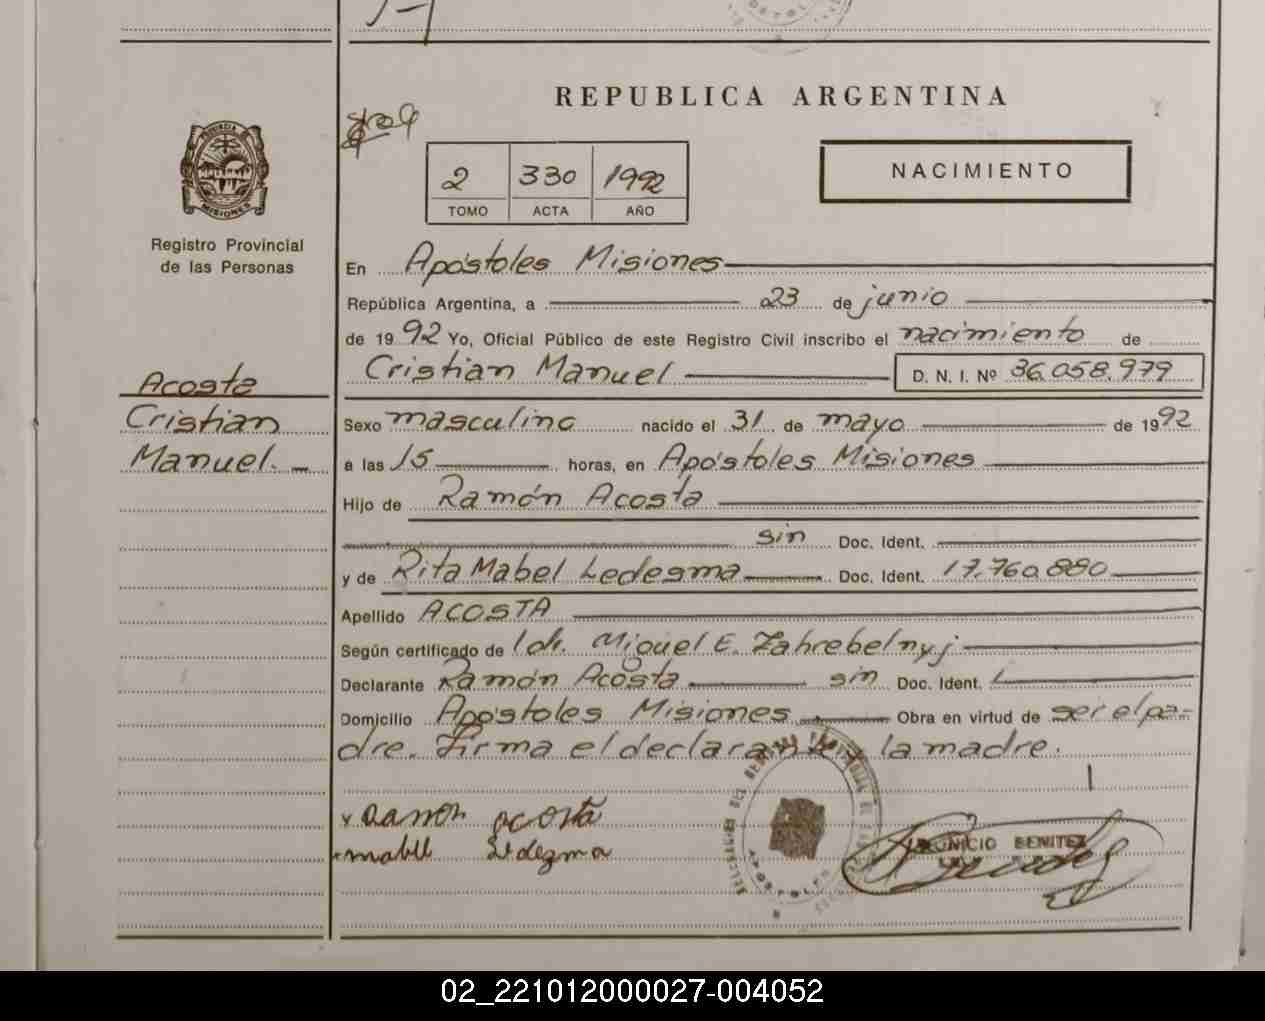 REPUBLICA ARGENTINA
PROVINCIA DE
MISIONES
Registro Provincial
de las Personas
2 330 1992
TOMO ACTA AÑO
NACIMIENTO
En Apóstoles Misiones
República Argentina, a 23 de junio
de 1992 Yo, Oficial Público de este Registro Civil inscribo el nacimiento de
Cristian Manuel D. N. I. Nº 36.058.979
Acosta
Cristian
Manuel.
Sexo masculino nacido el 31 de mayo de 1992
a las 15 horas, en Apóstoles Misiones
Hijo de Ramón Acosta
sin Doc. Ident.
y de Rita Mabel Ledesma Doc. Ident. 17.760.880
Apellido ACOSTA
Según certificado de Miguel E. Zahrebelnyj
Declarante Ramón Acosta sin Doc. Ident.
Domicilio Apóstoles Misiones Obra en virtud de ser el pa-
dre. Firma el declarante y la madre.
Ramon acosta
mabel Ledezma
BENITEZ
APOSTOLES
02_221012000027-004052